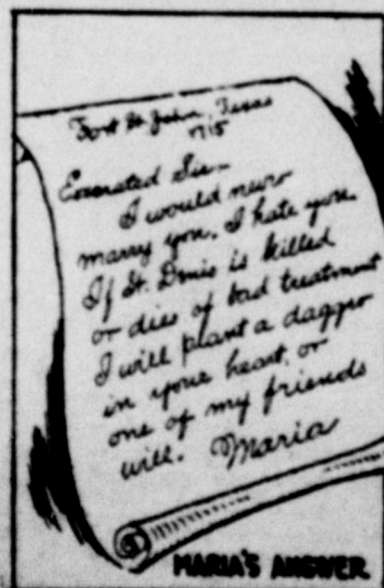 Fort St. John, Texas
1715
Execrated Sir-
I would never
marry you. I hate you.
If St. Denis is killed
or dies of bad treatment
I will plant a dagger
in your heart, or
one of my friends
will. Maria
MARIA'S ANSWER